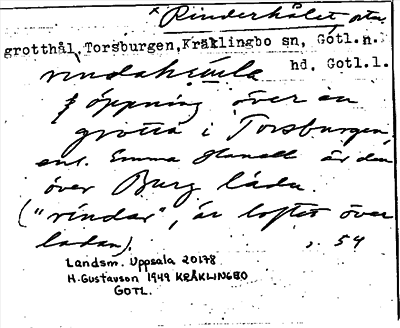 * Rinderhålet
grotthål, Torsburgen, Kräklingbo sn, Gotl.n.
hd. Gotl.l.
öppning över en
grotta i Torsburgen,
enl. Emma är den
över Burg lådu.
("rindar", är loftet över
ladan). s. 54
Landsm. Uppsala 20178
H. Gustavson 1949 KRÄKLINGBO
GOTL.